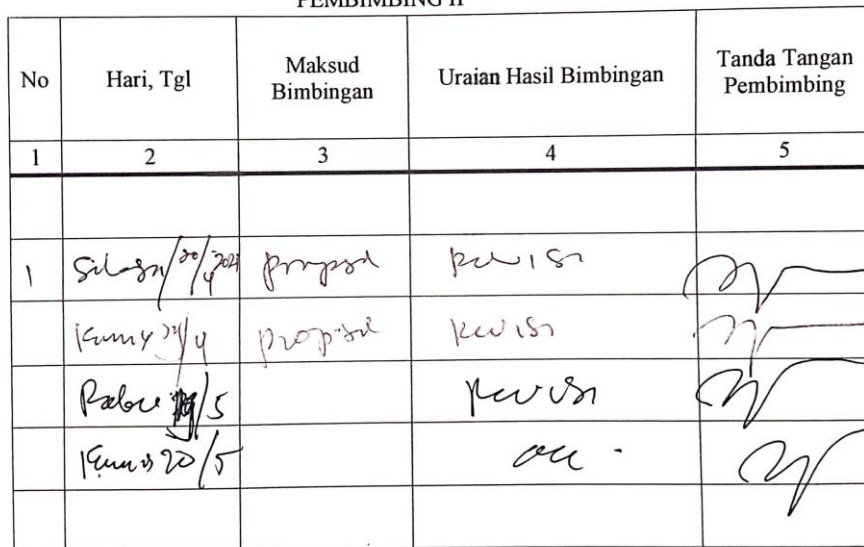 PEMBIMBING II
No Hari, Tgl Maksud Bimbingan Uraian Hasil Bimbingan Tanda Tangan Pembimbing
1 2 3 4 5
1 Selasa/20/4 2021 proposal Revisi
Kamis /4 proposal Revisi
Rabu 19/5 Revisi
Kamis 20/5 acc.